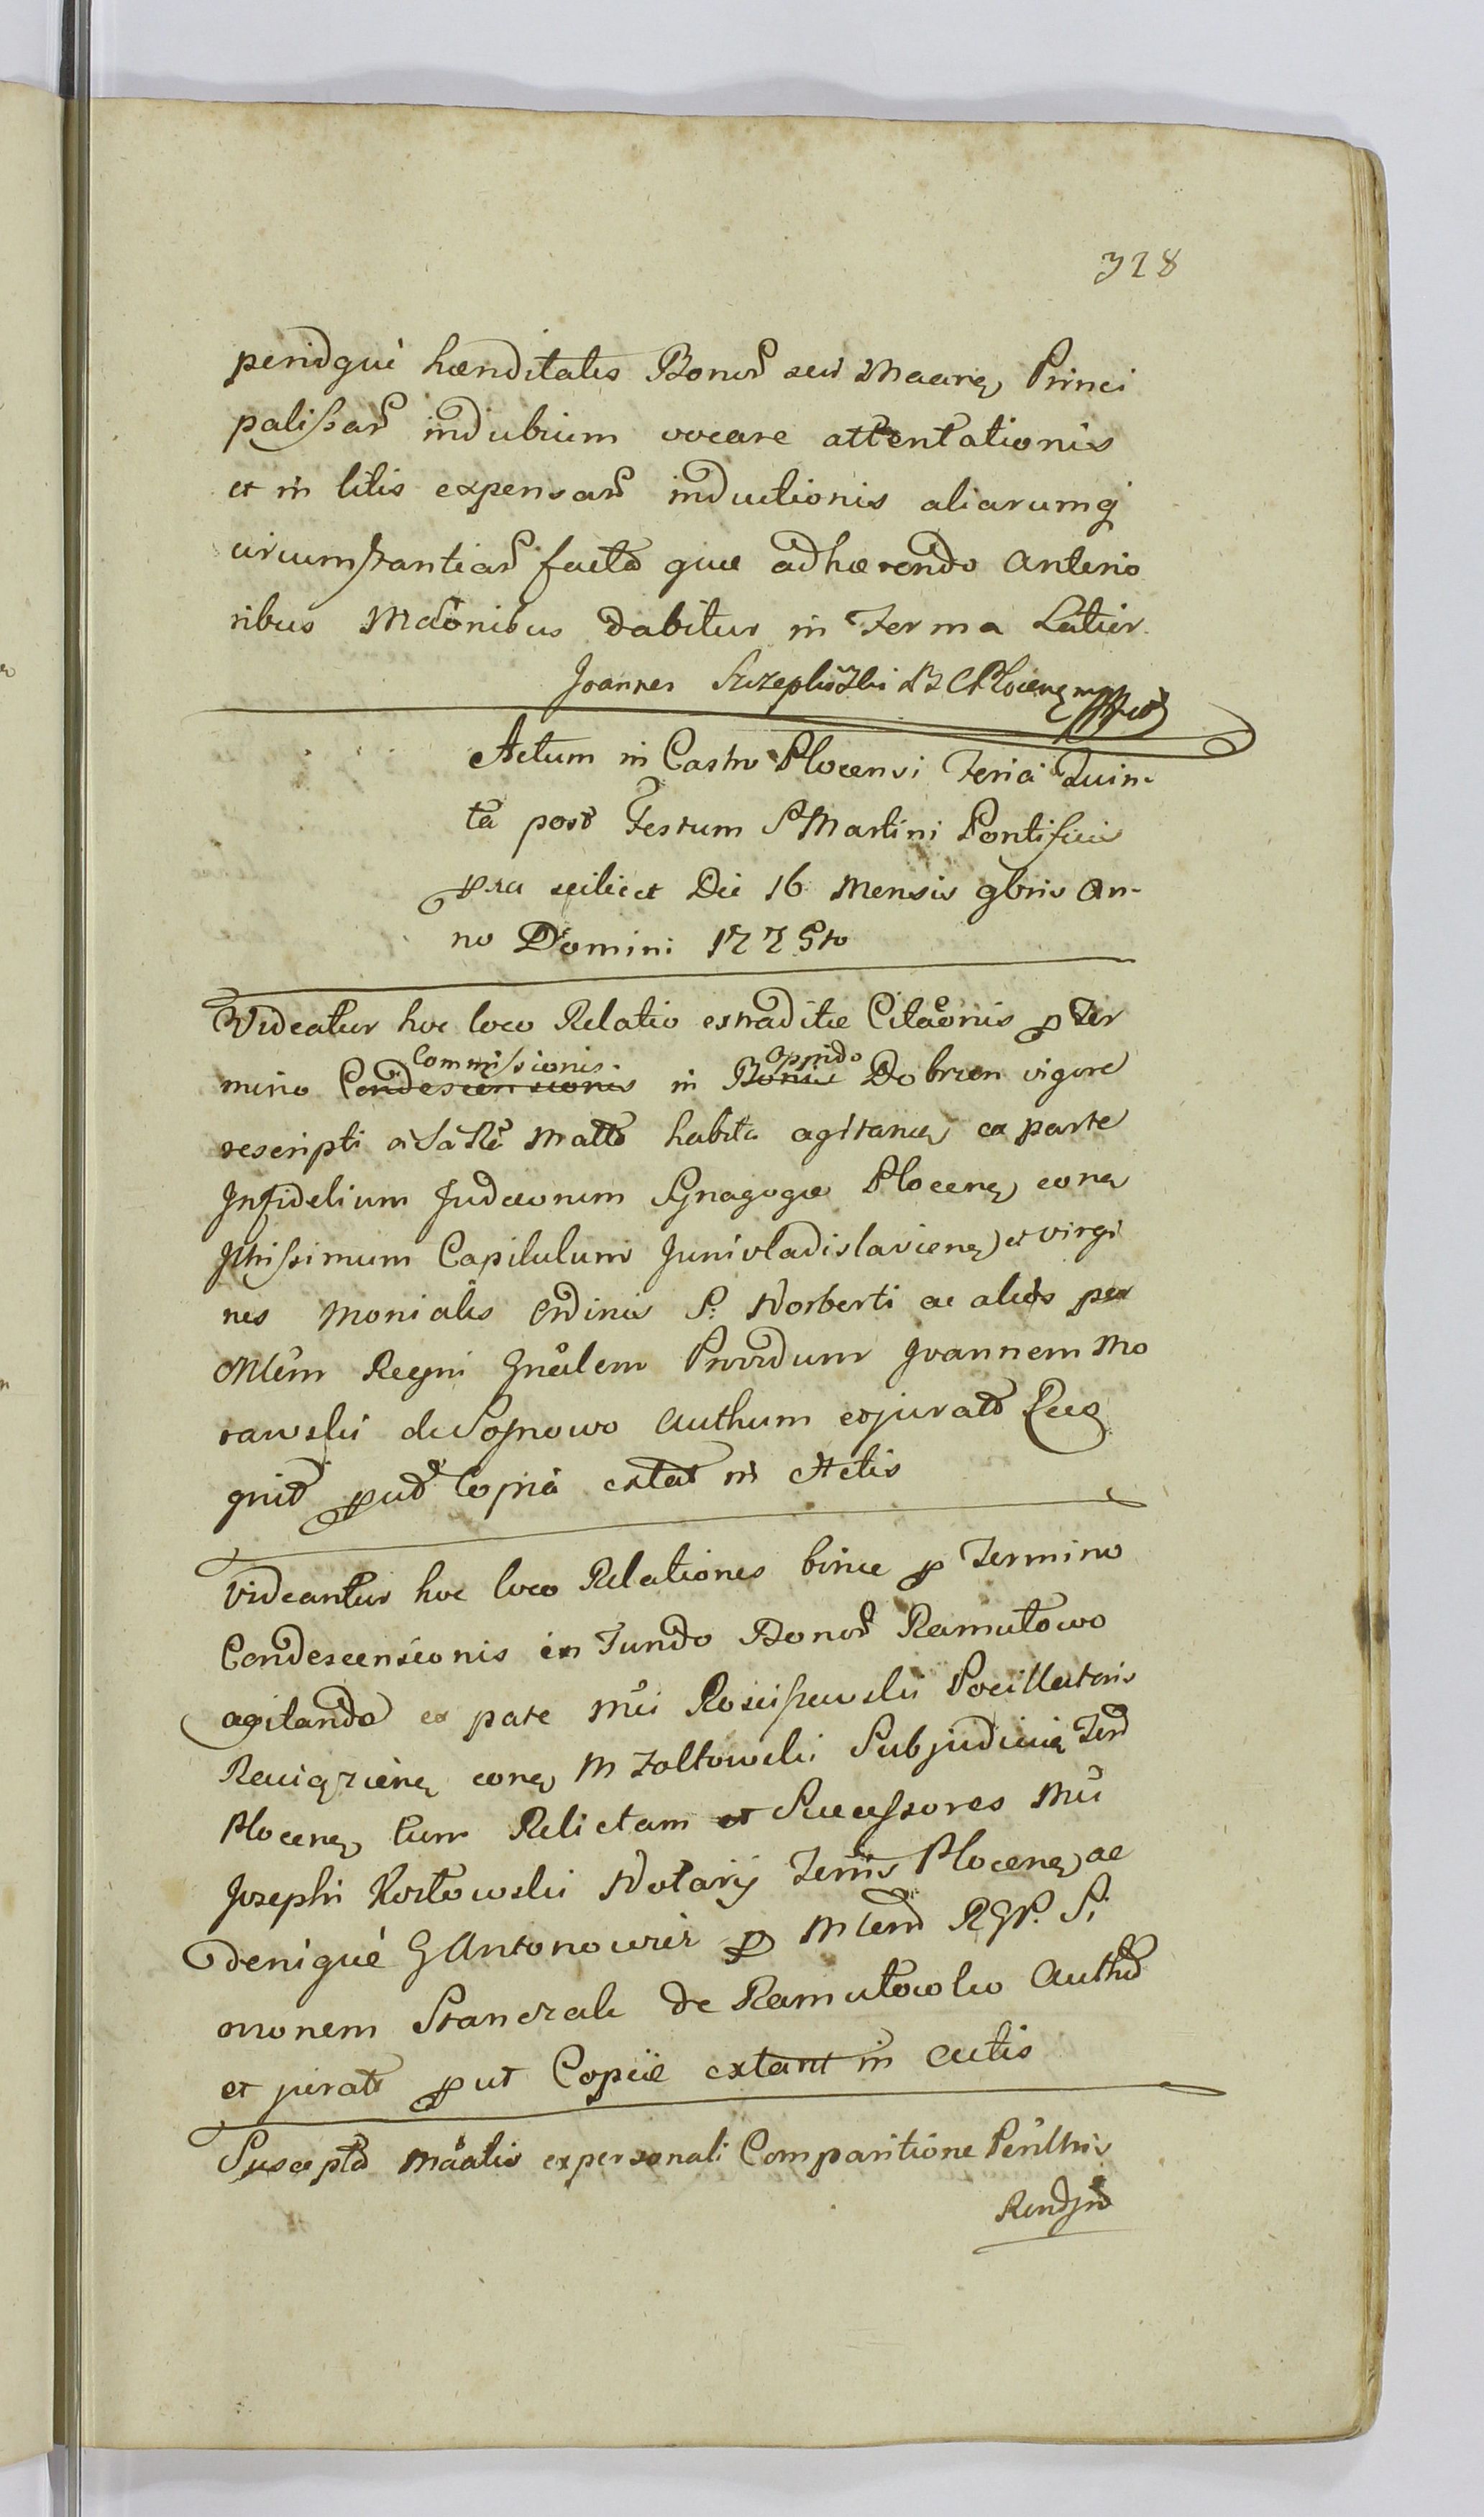 328
peridque haereditatis Bonor seu Maare Princi
palissar indubium vocare attentationis
et in litis expensar inductionis aliarumq
circumstantiar facta quae adhaerendo anterio
ribus Mdonibus dabitur in Ferma Latior
Joannes
Actum in Castro Plocensi Feria Quin-
ta post Festum S Martini Pontificis
pra scilicet Die 16 Mensis 9bris An-
no Domini 1775to
Videatur hoc loco Relatio extraditae Citaonis p Ter
Commissionis oppido
mino Condescensionis in Bonis Dobrzen vigore
rescripti a Sa Ra Matte habita agitanen ex parte
Infidelium Judaeorum Synagogae Plocen con
Illmissimum Capitulum Junivladislavien et virgi
nes moniales Ordinis S. Norberti ac alios per
Mlem Regni Gnalem Providum Joannem Mo
rawski de Sosnowo Authum et jurat Reco
gnit put Copia extat in Actis
Videantur hoc loco Relationes binae p Termino
Condescensionis in Fundo Bonor Ramutowo
agitando ex parte Mci Rosciszewski Pocillatoris
Raciązien con M Zoltowski Subjudicem Terr
Plocen tum Relictam et Successores Mci
Josephi Kostowski Notarij Terris Plocen ac
denique G Antonowicz p Mlem RGP. Si
monem Stanczak de Ramutowko Auth
et jurat put Copiae extant in actis
Suscepta Maalis ex personali Comparitione Perillris